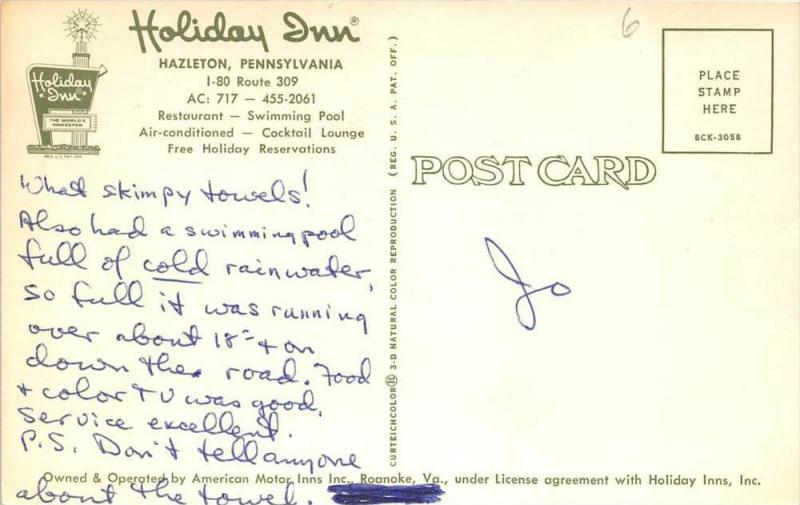 Holiday Inn®
HAZLETON, PENNSYLVANIA
I-80 Route 309
AC: 717 — 455-2061
Restaurant — Swimming Pool
Air-conditioned — Cocktail Lounge
Free Holiday Reservations
Holiday
Inn
THE WORLD'S
INNKEEPER
REG. U.S. PAT. OFF.
What skimpy towels!
Also had a swimming pool
full of cold rainwater,
so full it was running
over about 18" + on
down the road. Food
+ color TV was good,
Service excellent.
P.S. Don't tell anyone
about the towel.
CURTEICHCOLOR® 3-D NATURAL COLOR REPRODUCTION (REG. U.S.A. PAT. OFF.)
6
PLACE
STAMP
HERE
8CK-3058
POST CARD
Jo
Owned & Operated by American Motor Inns Inc., Roanoke, Va., under License agreement with Holiday Inns, Inc.